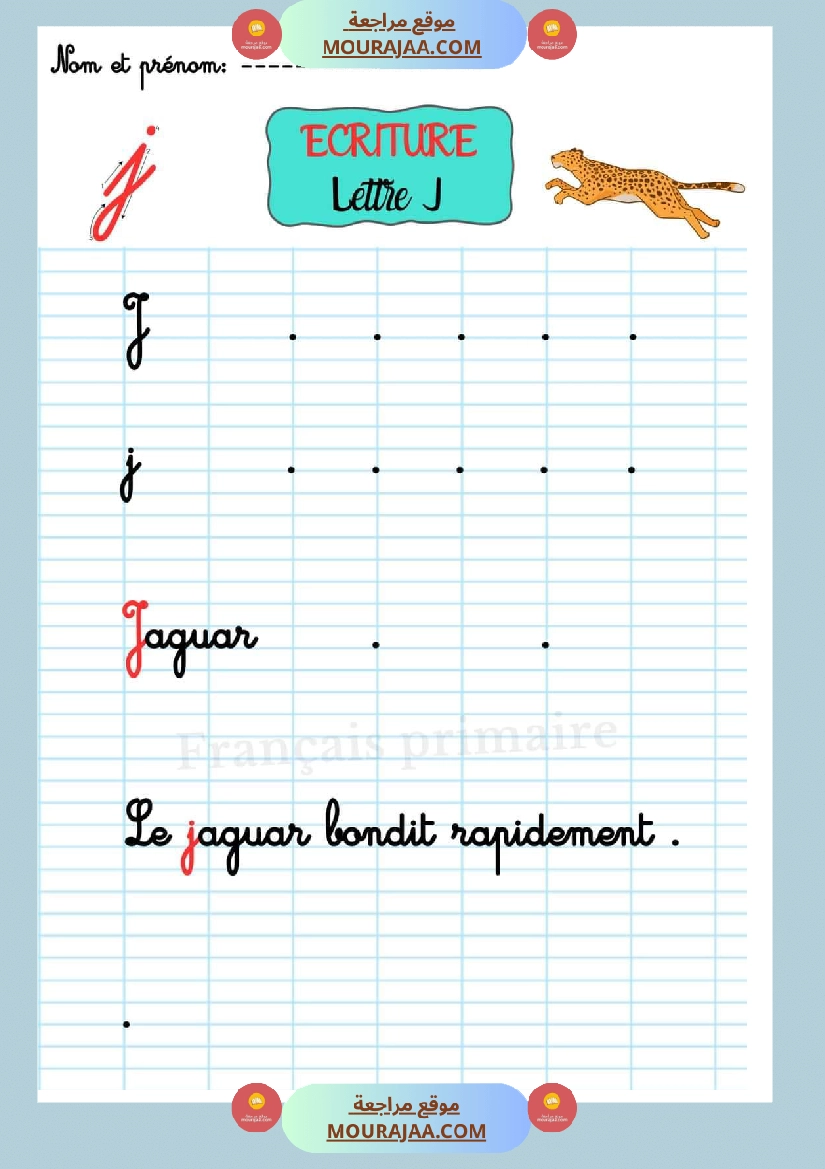 موقع مراجعة
MOURAJAA.COM
Nom et prénom: -----
ECRITURE
Lettre J
J . . . . .
j . . . . .
Jaguar . .
Français primaire
Le jaguar bondit rapidement .
.
موقع مراجعة
MOURAJAA.COM